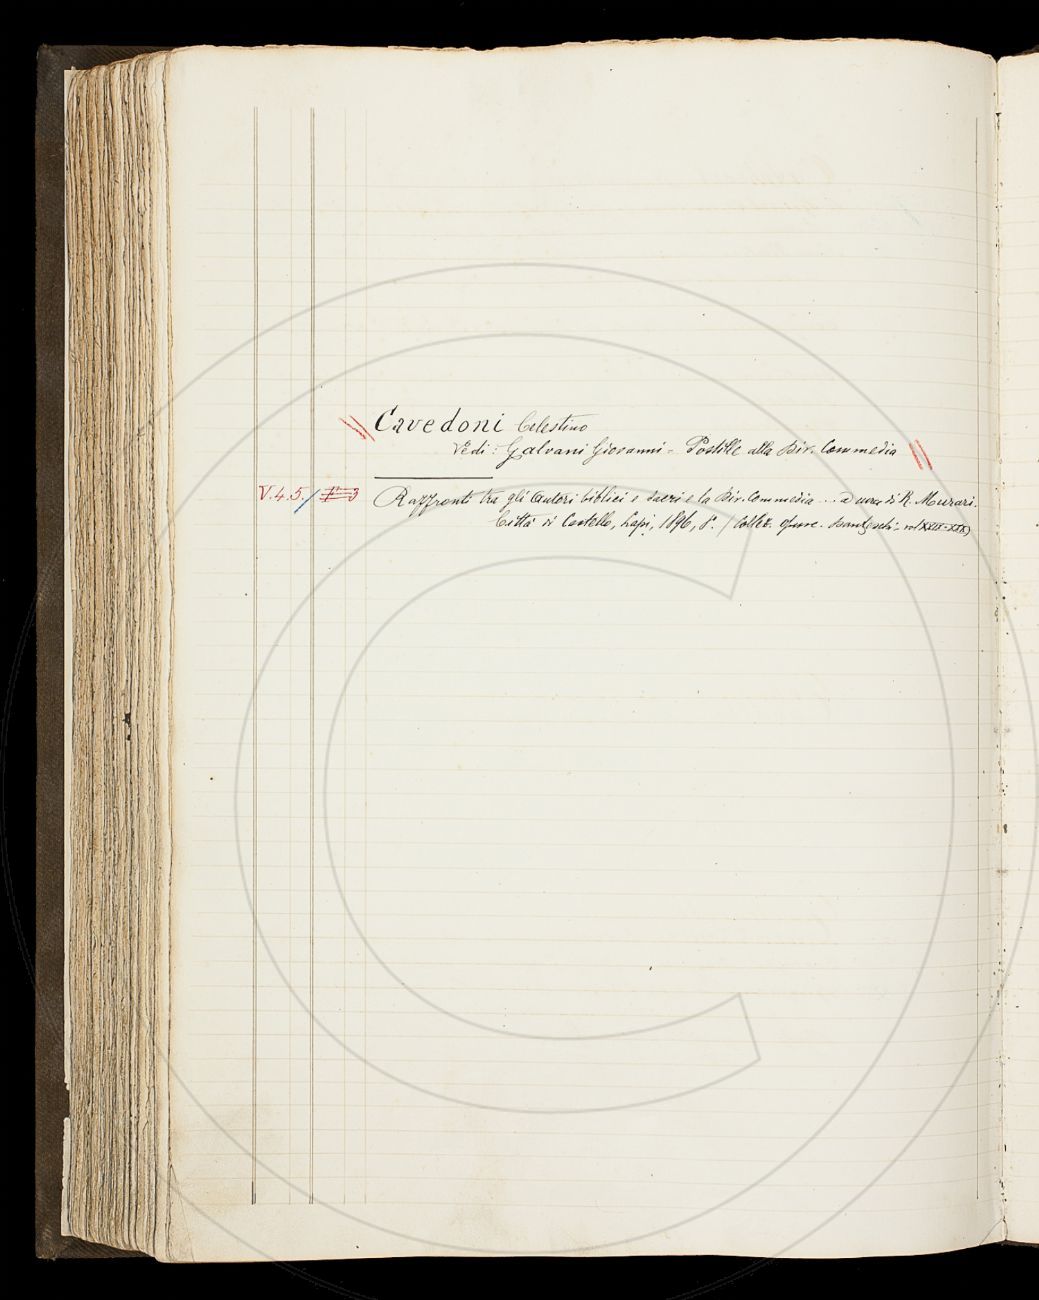 Cavedoni Celestino
Vedi: Galvani Giovanni - Postille alla Div. Commedia
V.4.5./ 3 Raffronti tra gli autori biblici e sacri e la Div. Commedia ... a cura di R. Murari.
Città di Castello, Lapi, 1896, 8°. (Collez. opusc. danteschi - vol XXIX-XXX)